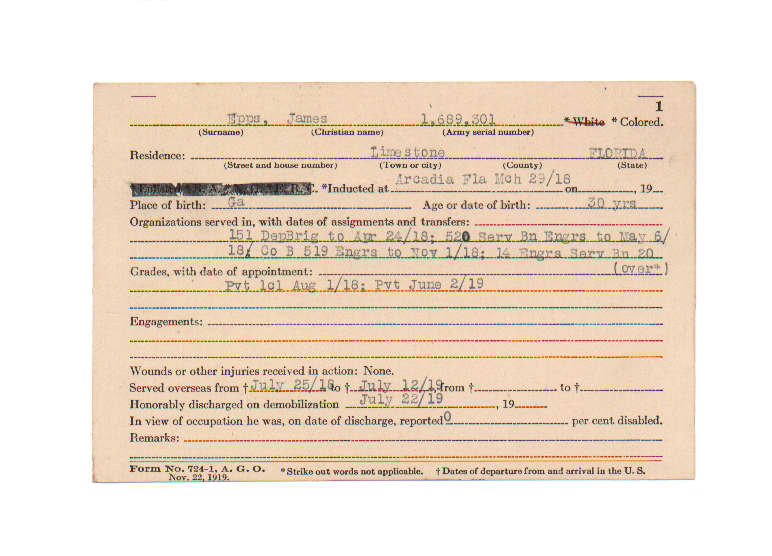 1
Epps, James 1,689,301 *White *Colored.
(Surname) (Christian name) (Army serial number)
Residence: Limestone FLORIDA
(Street and house number) (Town or city) (County) (State)
*Inducted at Arcadia Fla Mch 29/18 on , 19
Place of birth: Ga Age or date of birth: 30 yrs
Organizations served in, with dates of assignments and transfers:
151 DepBrig to Apr 24/18; 520 Serv Bn Engrs to May 6/
18/ Co B 519 Engrs to Nov 1/18; 14 Engrs Serv Bn 20
Grades, with date of appointment: (over*)
Pvt 1cl Aug 1/18; Pvt June 2/19
Engagements:
Wounds or other injuries received in action: None.
Served overseas from † July 25/18 to † July 12/19 from † to †
Honorably discharged on demobilization July 22/19 , 19
In view of occupation he was, on date of discharge, reported 0 per cent disabled.
Remarks:
Form No. 724-1, A. G. O. *Strike out words not applicable. †Dates of departure from and arrival in the U. S.
Nov. 22, 1919.